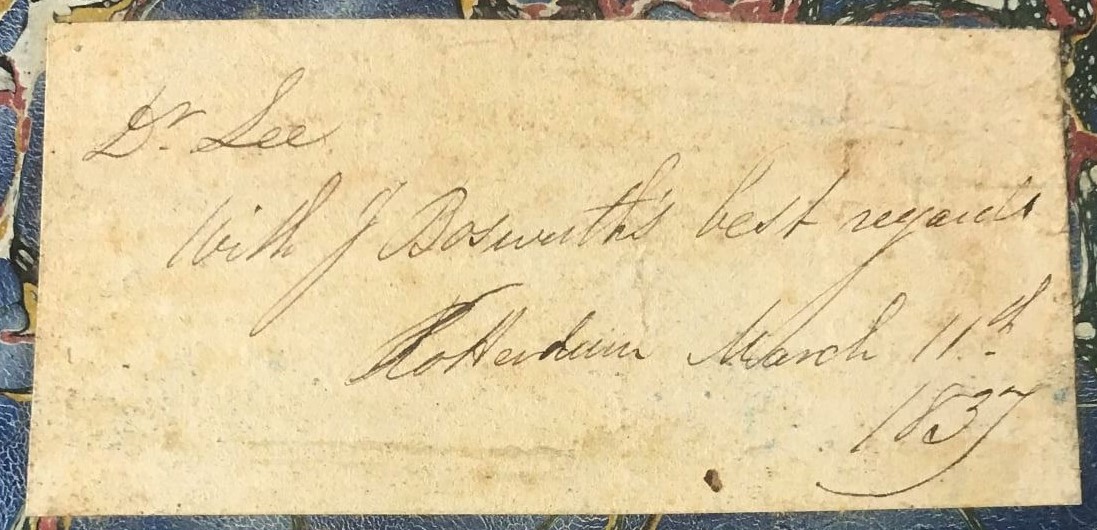 Dr. Lee
With J Bosworth's best regards
Rotterdam March 11th
1837